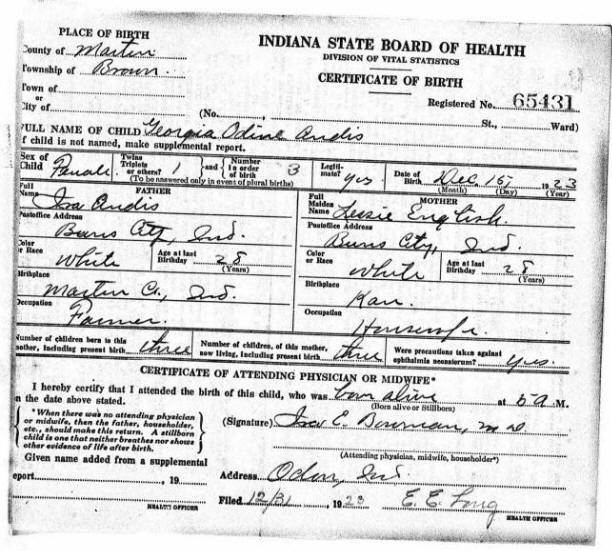 PLACE OF BIRTH
County of Martin
Township of Brown
Town of
or
City of
INDIANA STATE BOARD OF HEALTH
DIVISION OF VITAL STATISTICS
CERTIFICATE OF BIRTH
Registered No. 65431
(No. , St., Ward)
FULL NAME OF CHILD Georgia Odine Andis
If child is not named, make supplemental report.
Sex of Child Female Twins Triplets or others? 1 and Number in order of birth 3 Legitimate? yes Date of Birth Dec. 15, 1923
(To be answered only in event of plural births) (Month) (Day) (Year)
FATHER
Full Name Ira Andis
Postoffice Address
Burns City, Ind.
Color or Race White Age at last Birthday 28 (Years)
Birthplace
Martin Co., Ind.
Occupation
Farmer
MOTHER
Full Maiden Name Lessie English
Postoffice Address
Burns City, Ind.
Color or Race White Age at last Birthday 28 (Years)
Birthplace
Kan.
Occupation
Housewife
Number of children born to this mother, including present birth three Number of children, of this mother, now living, including present birth three Were precautions taken against ophthalmia neonatorum? yes.
CERTIFICATE OF ATTENDING PHYSICIAN OR MIDWIFE*
I hereby certify that I attended the birth of this child, who was born alive at 5 A M.
on the date above stated. (Born alive or Stillborn)
* When there was no attending physician
or midwife, then the father, householder,
etc., should make this return. A stillborn
child is one that neither breathes nor shows
other evidence of life after birth.
(Signature) E. Bowman, M D
(Attending physician, midwife, householder*)
Given name added from a supplemental
report , 19
HEALTH OFFICER
Address Odon, Ind.
Filed 12/31 1923 E. E. Long
HEALTH OFFICER